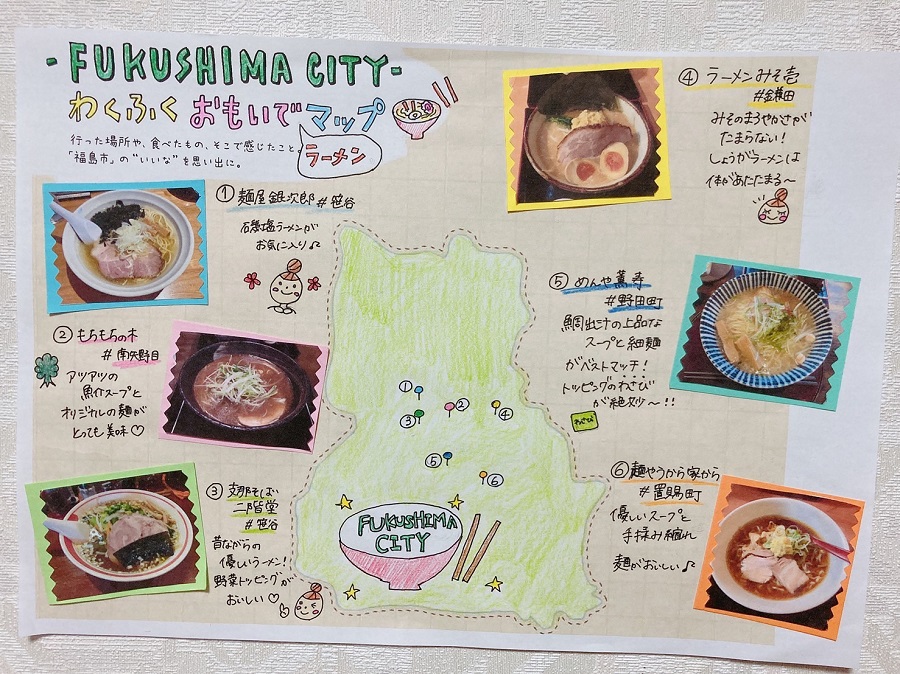 -FUKUSHIMA CITY-
わくふく おもいで マップ
行った場所や、食べたもの、そこで感じたこと
「福島市」の"いいな"を思い出に。
ラーメン
① 麺屋 銀次郎 #笹谷
石磯塩ラーメンが
お気に入り♪
② もちもちの木
#南矢野目
アツアツの
魚介スープと
オリジナルの麺が
とっても美味♡
③ 支那そば
二階堂
#笹谷
昔ながらの
優しいラーメン!
野菜トッピングが
おいしい♡
④ ラーメンみそ壱
#鎌田
みそのまろやかさが
たまらない!
しょうがラーメンは
体があたたまる〜
⑤ めんや薫寿
#野田町
鯛出汁の上品な
スープと細麺
がベストマッチ!
トッピングのわさび
が絶妙〜!!
わさび
⑥ 麺やうから家から
#置賜町
優しいスープと
手揉み縮れ
麺がおいしい♪
①
②
③
④
⑤
⑥
FUKUSHIMA
CITY